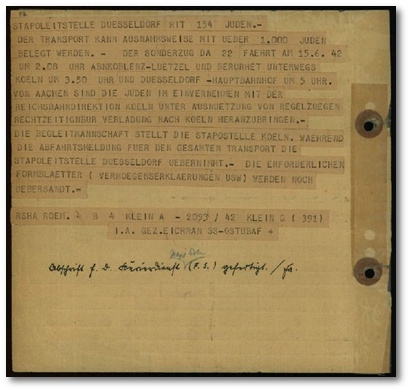 STAPOLEITSTELLE DUESSELDORF MIT 154 JUDEN.-
DER TRANSPORT KANN AUSNAHMSWEISE MIT UEBER 1.000 JUDEN
BELEGT WERDEN. - DER SONDERZUG DA 22 FAEHRT AM 15.6. 42
UM 2.08 UHR ABNKOBLENZ-LUETZEL UND BERUEHRT UNTERWEGS
KOELN UM 3.50 UHR UND DUESSELDORF -HAUPTBAHNHOF UM 5 UHR.
VON AACHEN SIND DIE JUDEN IM EINVERNEHMEN MIT DER
REICHSBAHNDIREKTION KOELN UNTER AUSNUETZUNG VON REGELZUEGEN
RECHTZEITIGNBUR VERLADUNG NACH KOELN HERANZUBRINGEN.-
DIE BEGLEITMANNSCHAFT STELLT DIE STAPOSTELLE KOELN, WAEHREND
DIE ABFAHRTSMELDUNG FUER DEN GESAMTEN TRANSPORT DIE
STAPOLEITSTELLE DUESSELDORF UEBERNIMMT.- DIE ERFORDERLICHEN
FORMBLAETTER ( VERMOEGENSERKLAERUNGEN USW) WERDEN NOCH
UEBERSANDT.-
RSHA ROEM. 4 B 4 KLEIN A - 2093 / 42 KLEIN G ( 391)
I.A. GEZ.EICHMAN SS-OSTUBAF +
Abschrift f. d. (F.S.) gefertigt. /